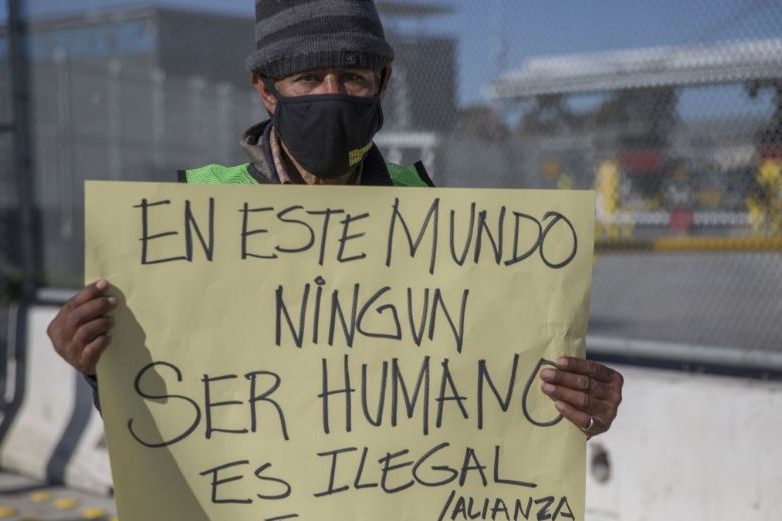 EN ESTE MUNDO
NINGUN
SER HUMANO
ES ILEGAL
/ALIANZA